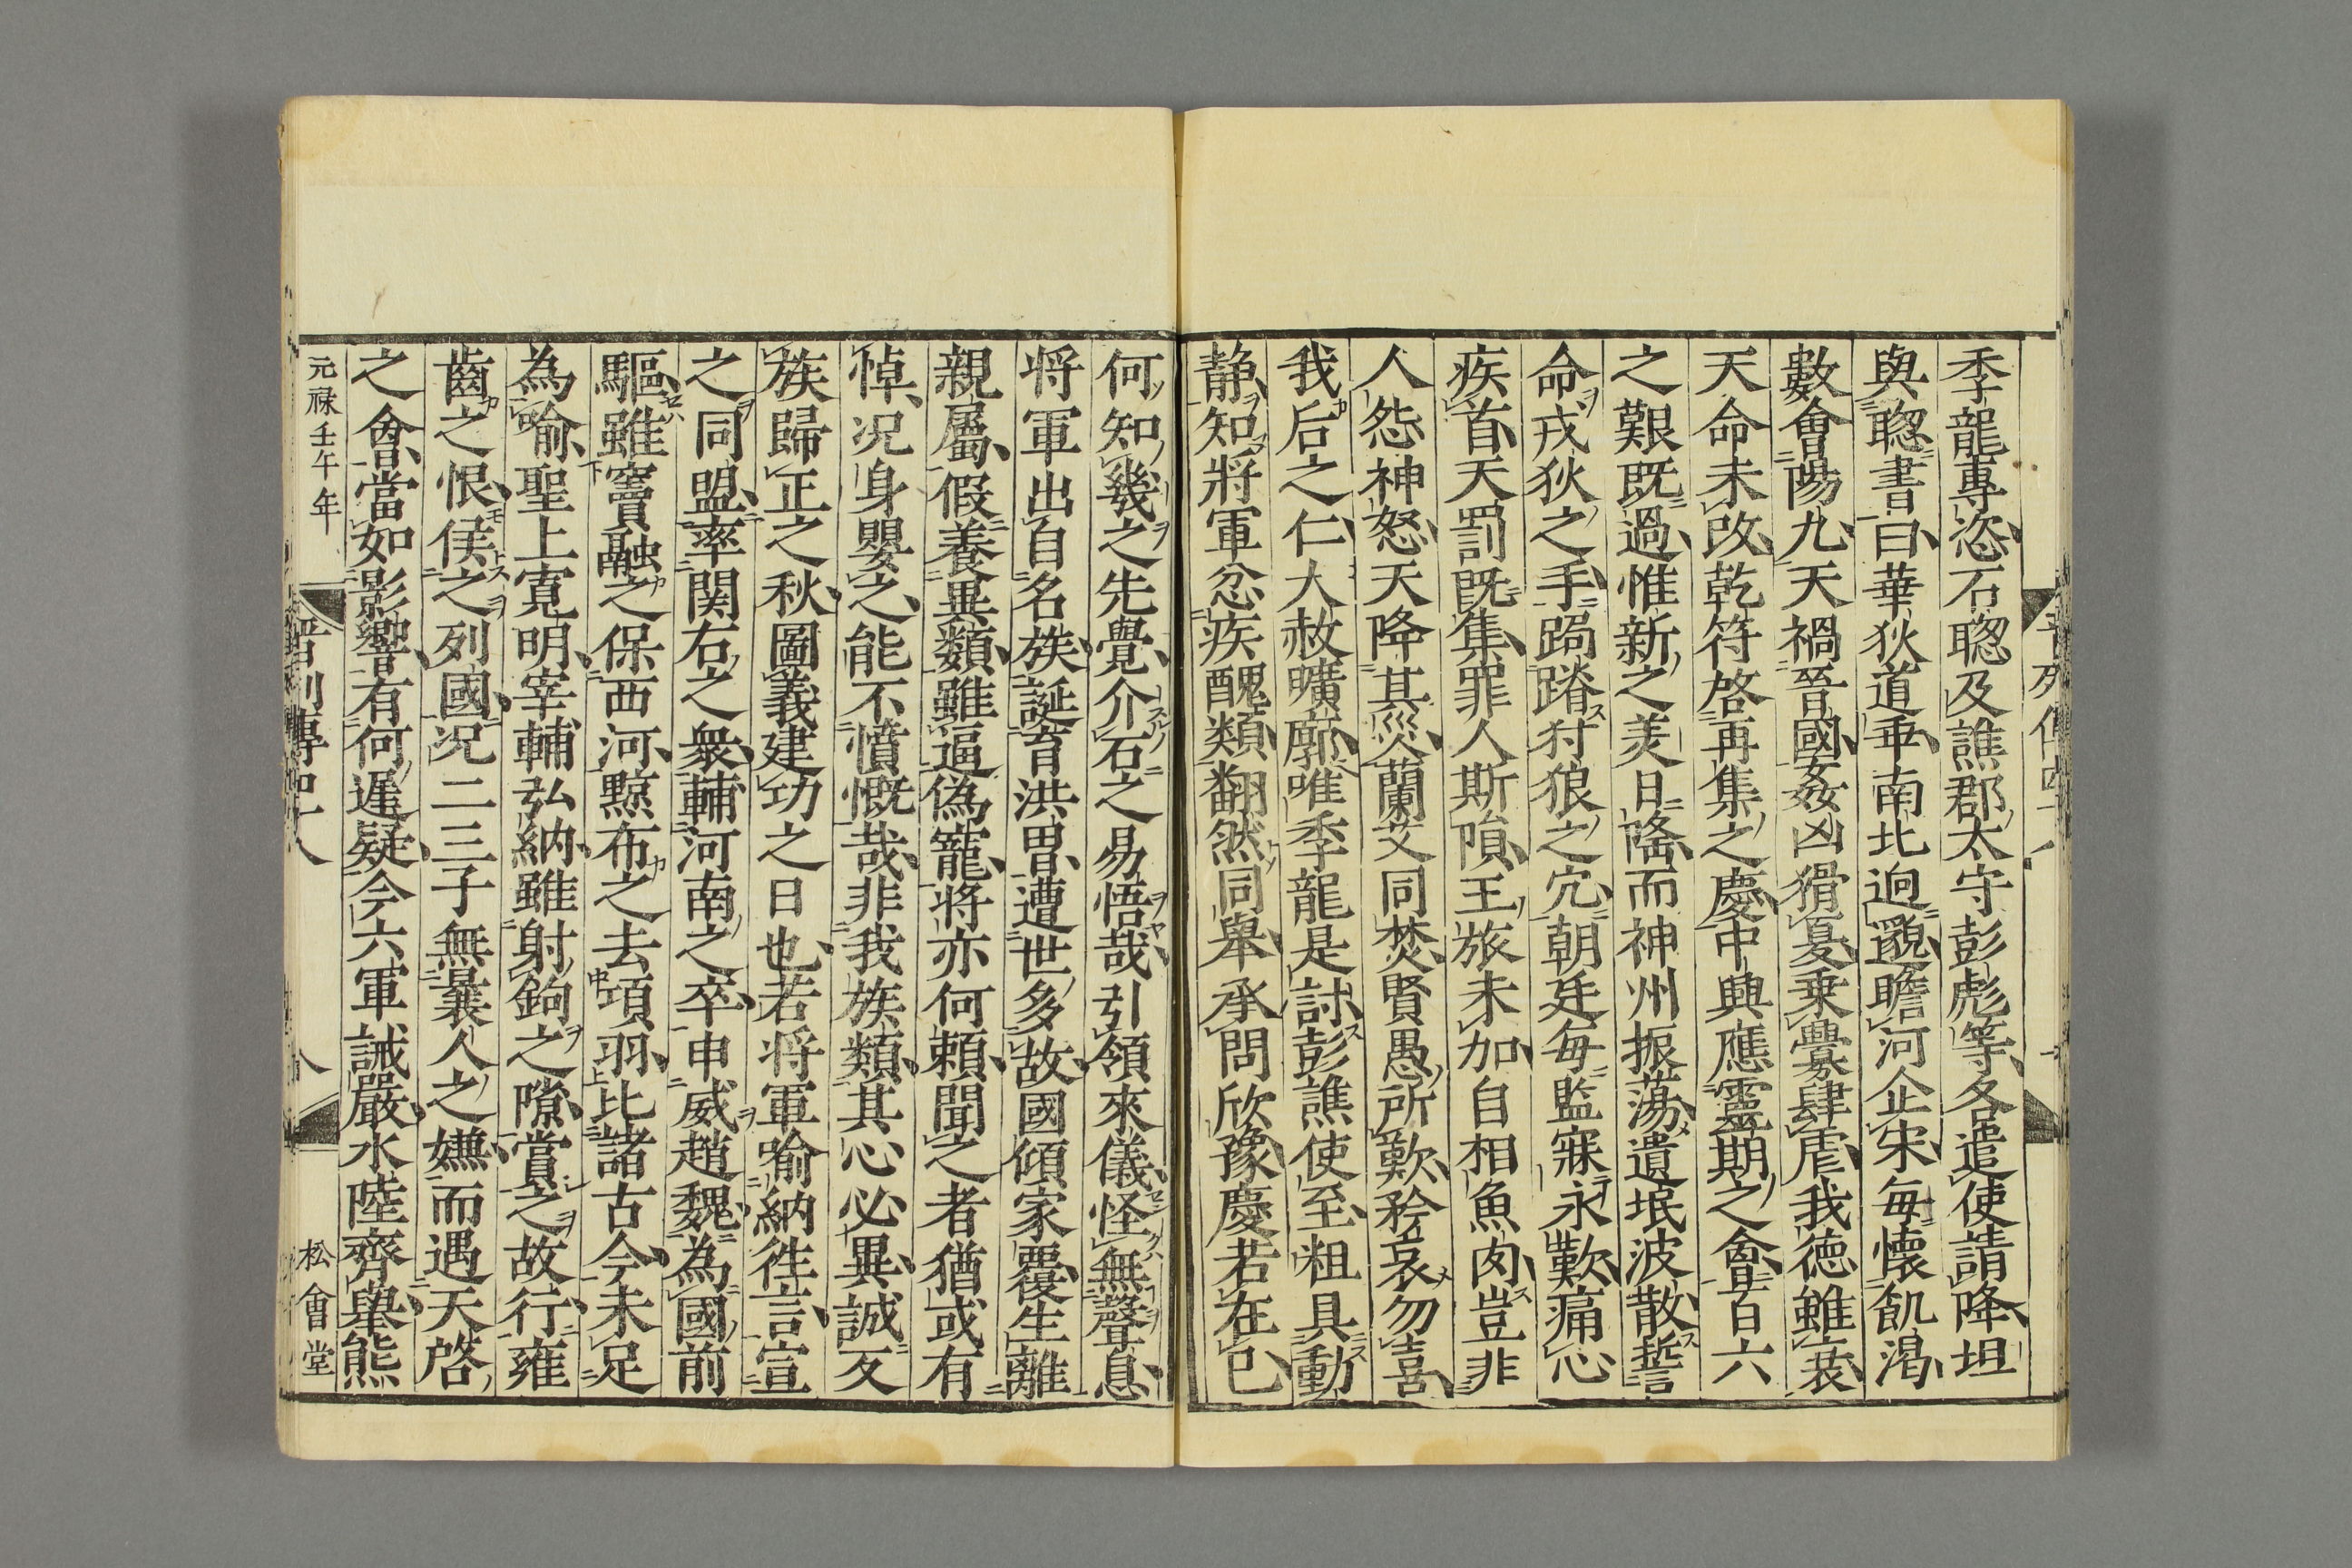 季龍專恣石聦及譙郡太守彭彪等各遣使請降坦
與聦書曰華狄道乖南北逈邈瞻河企宋每懷飢渇
數會陽九天禍晉國姦凶猾夏乗釁肆虐我徳雖衰
天命未改乾符啓再集之慶中興應靈期之會百六
之艱既過惟新之美日隆而神州振蕩遺氓波散誓
命戎狄之手跼蹐犲狼之穴朝廷每監寐永歎痛心
疾首天罰既集罪人斯隕王旅未加自相魚肉豈非
人怨神怒天降其災蘭艾同焚賢愚所歎矜哀勿喜
我后之仁大赦曠廓唯季龍是討彭譙使至粗具動
静知將軍忿疾醜類翻然同舉承問欣豫慶若在己
何知幾之先覺介石之易悟哉引領來儀怪無聲息
将軍出自名族誕育洪胄遭世多故國傾家覆生離
親屬假養異類雖逼偽寵将亦何頼聞之者猶或有
悼况身嬰之能不憤慨哉非我族類其心必異誠反
族歸正之秋圖義建功之日也若将軍喻納徃言宣
之同盟率関右之衆輔河南之卒申威趙魏為國前
驅雖竇融之保西河黥布之去項羽比諸古今未足
為喻聖上寛明宰輔弘納雖射鉤之隙賞之故行雍
齒之恨侯之列國况二三子無曩人之嫌而遇天啓
之會當如影響有何遲疑今六軍誡嚴水陸齊舉熊
元禄壬午年
晉列傳四十八
八
松會堂